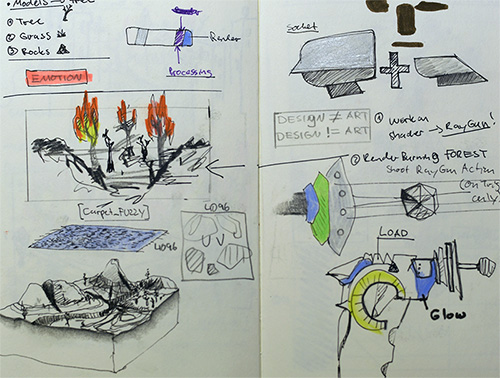 • Models → Tree
① Tree
② Grass
③ Rocks
Render
Processing
EMOTION
[Carpet_FUZZY]
LO96
LO96
Socket
DESIGN ≠ ART
DESIGN != ART
① Work on
shader → RayGun!
② Render Burning FOREST
Shoot RayGun Action
(on Tree
only)
LOAD
Glow